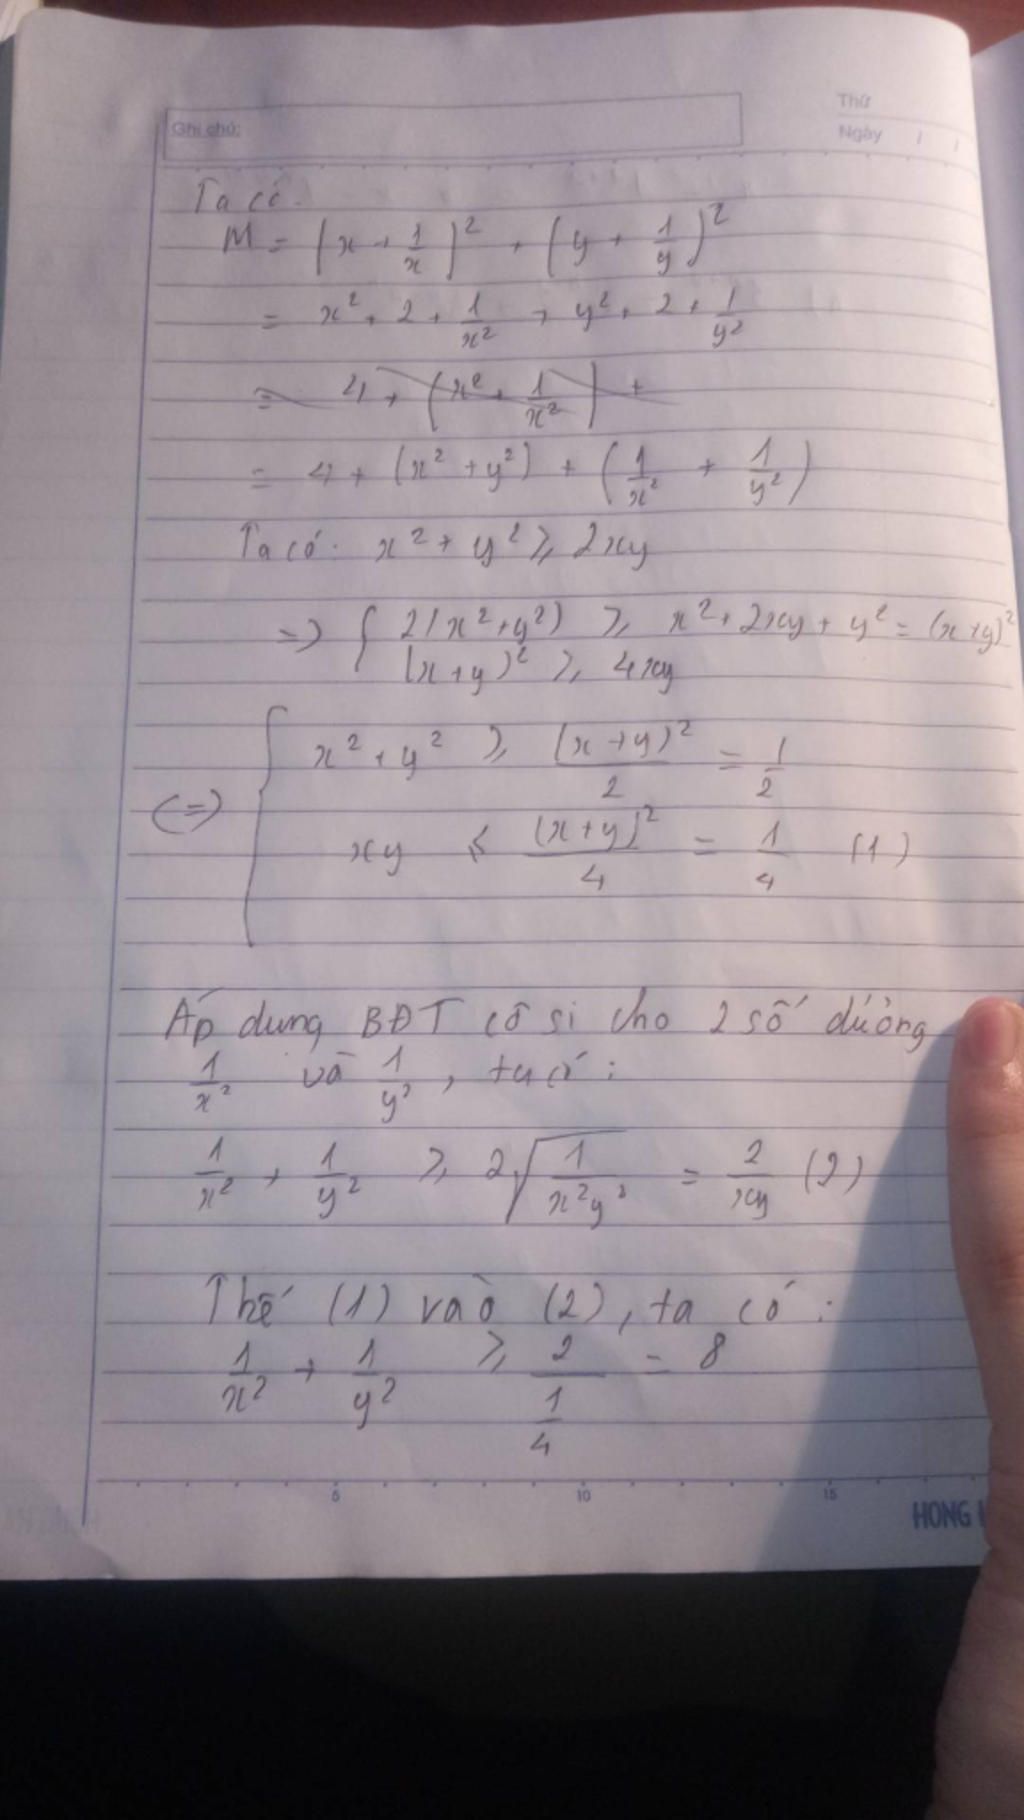 Ghi chú:
Thứ
Ngày / /
Ta có.
M = (x + 1/x)² + (y + 1/y)²
= x² + 2 + 1/x² + y² + 2 + 1/y²
= 4 + (x² + 1/x²) +
= 4 + (x² + y²) + (1/x² + 1/y²)
Ta có: x² + y² ≥ 2xy
=> { 2(x² + y²) ≥ x² + 2xy + y² = (x+y)²
(x+y)² ≥ 4xy
(=) { x² + y² ≥ (x+y)²/2 = 1/2
xy ≤ (x+y)²/4 = 1/4 (1)
Áp dung BĐT cô si cho 2 số dương
1/x² và 1/y², ta có:
1/x² + 1/y² ≥ 2√(1/x²y²) = 2/xy (2)
Thế (1) vào (2), ta có:
1/x² + 1/y² ≥ 2/(1/4) = 8
5 10 15
HONG